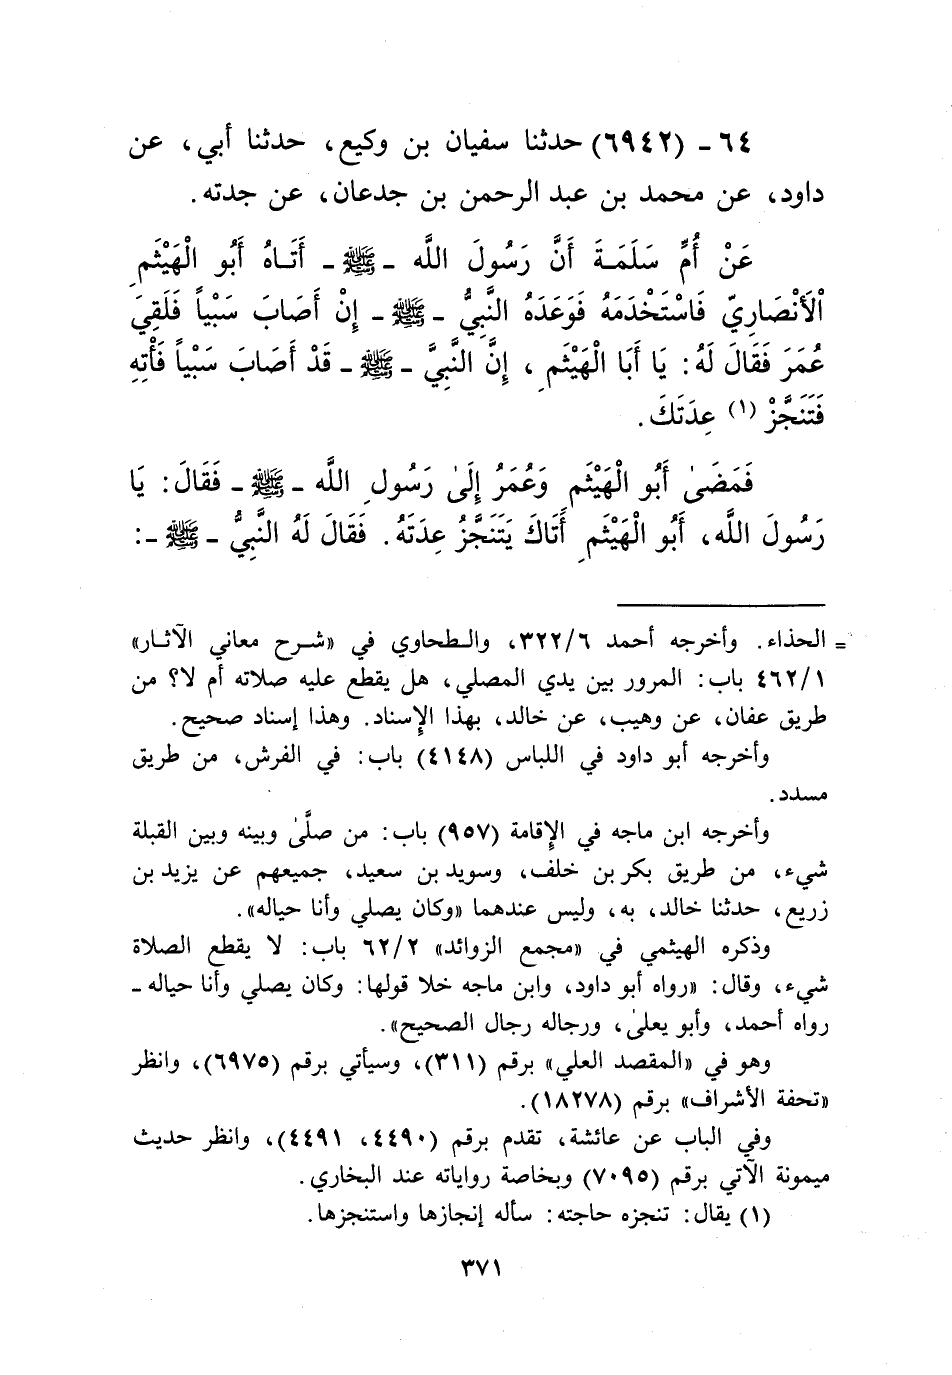 ٦٤ - (٦٩٤٢) حدثنا سفيان بن وكيع، حدثنا أبي، عن
داود، عن محمد بن عبد الرحمن بن جدعان، عن جدته.
عَنْ أُمِّ سَلَمَـةَ أَنَّ رَسُولَ اللَّه - ﷺ - أَتَـاهُ أَبُو الْهَيْثَمِ
اْلأَنْصَارِيّ فَاسْتَخْدَمَهُ فَوَعَدَهُ النَّبِيُّ - ﷺ - إِنْ أَصَابَ سَبْياً فَلَقِيَ
عُمَرَ فَقَالَ لَهُ: يَا أَبَا الْهَيْثَمِ، إِنَّ النَّبِيَّ - ﷺ - قَدْ أَصَابَ سَبْياً فَأْتِهِ
فَتَنَجَّزْ (١) عِدَتَكَ.
فَمَضَىٰ أَبُو الْهَيْثَمِ وَعُمَرُ إِلَىٰ رَسُولِ اللَّه - ﷺ - فَقَالَ: يَا
رَسُولَ اللَّه، أَبُو الْهَيْثَمِ أَتَاكَ يَتَنَجَّزُ عِدَتَهُ. فَقَالَ لَهُ النَّبِيُّ - ﷺ -:
= الحذاء. وأخرجه أحمد ٣٢٢/٦، والـطحاوي في «شـرح معاني الآثـار»
٤٦٢/١ باب: المرور بين يدي المصلي، هل يقطع عليه صلاته أم لا؟ من
طريق عفان، عن وهيب، عن خالد، بهذا الإسناد. وهذا إسناد صحيح.
وأخرجه أبو داود في اللباس (٤١٤٨) باب: في الفرش، من طريق
مسدد.
وأخرجه ابن ماجه في الإقامة (٩٥٧) باب: من صلَّىٰ وبينه وبين القبلة
شيء، من طريق بكر بن خلف، وسويد بن سعيد، جميعهم عن يزيد بن
زريع، حدثنا خالد، به، وليس عندهما «وكان يصلي وأنا حياله».
وذكره الهيثمي في «مجمع الزوائد» ٦٢/٢ باب: لا يقطع الصلاة
شيء، وقال: «رواه أبو داود، وابن ماجه خلا قولها: وكان يصلي وأنا حياله -
رواه أحمد، وأبو يعلىٰ، ورجاله رجال الصحيح».
وهو في «المقصد العلي» برقم (٣١١)، وسيأتي برقم (٦٩٧٥)، وانظر
«تحفة الأشراف» برقم (١٨٢٧٨).
وفي الباب عن عائشة، تقدم برقم (٤٤٩٠، ٤٤٩١)، وانظر حديث
ميمونة الآتي برقم (٧٠٩٥) وبخاصة رواياته عند البخاري.
(١) يقال: تنجزه حاجته: سأله إنجازها واستنجزها.
٣٧١